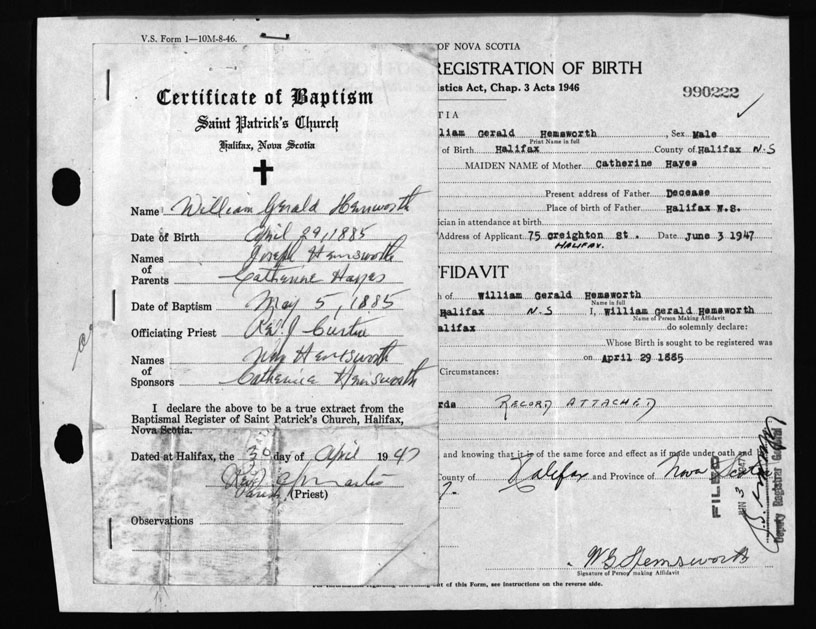 V.S. Form 1—10M-8-46.
Certificate of Baptism
Saint Patrick's Church
Halifax, Nova Scotia
Name William Gerald Hemsworth
Date of Birth April 29, 1885
Names of Parents Joseph Hemsworth
Catherine Hayes
Date of Baptism May 5, 1885
Officiating Priest Rev. J Curtin
Names of Sponsors Hemsworth
Catherine Hemsworth
I declare the above to be a true extract from the
Baptismal Register of Saint Patrick's Church, Halifax,
Nova Scotia.
Dated at Halifax, the 30 day of April 1947
Rev.
Parish (Priest)
Observations
OF NOVA SCOTIA
REGISTRATION OF BIRTH
istics Act, Chap. 3 Acts 1946
990222
TIA
lliam Gerald Hemsworth, Sex Male
Print Name in full
of Birth Halifax County of Halifax N.S
MAIDEN NAME of Mother Catherine Hayes
Present address of Father Decease
Place of birth of Father Halifax N.S.
ician in attendance at birth
Address of Applicant 75 creighton St. Date June 3 1947
HALIFAX.
FFIDAVIT
h of William Gerald Hemsworth
Name in full
Halifax N.S I, William Gerald Hemsworth
Name of Person Making Affidavit
alifax do solemnly declare:
Whose Birth is sought to be registered was
on April 29 1885
Circumstances:
rds RECORD ATTACHED
and knowing that it is of the same force and effect as if made under oath and
County of Halifax and Province of Nova Scotia
FILED
JUN 3 1947
Deputy Registrar General
W G Hemsworth
Signature of Person making Affidavit
of this Form, see instructions on the reverse side.